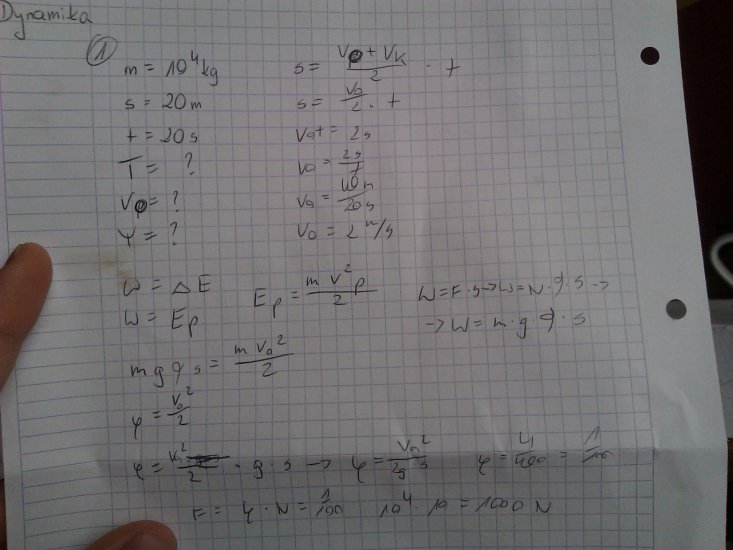 Dynamika
1
m = 10⁴ kg
s = 20 m
t = 20 s
T = ?
v₀ = ?
φ = ?
s = (v₀ + vₖ)/2 · t
s = v₀/2 · t
v₀t = 2s
v₀ = 2s/t
v₀ = 40m/20s
v₀ = 2 m/s
W = ΔE
W = Ep
Ep = m v²p/2
W = F · s → W = N · φ · s →
→ W = m · g · φ · s
m g φ s = m v₀²/2
φ = v₀²/2
φ = v₀²/2 · g · s → φ = v₀²/2g s φ = 4/400 = 1/100
F = φ · N = 1/100 10⁴ · 10 = 1000 N